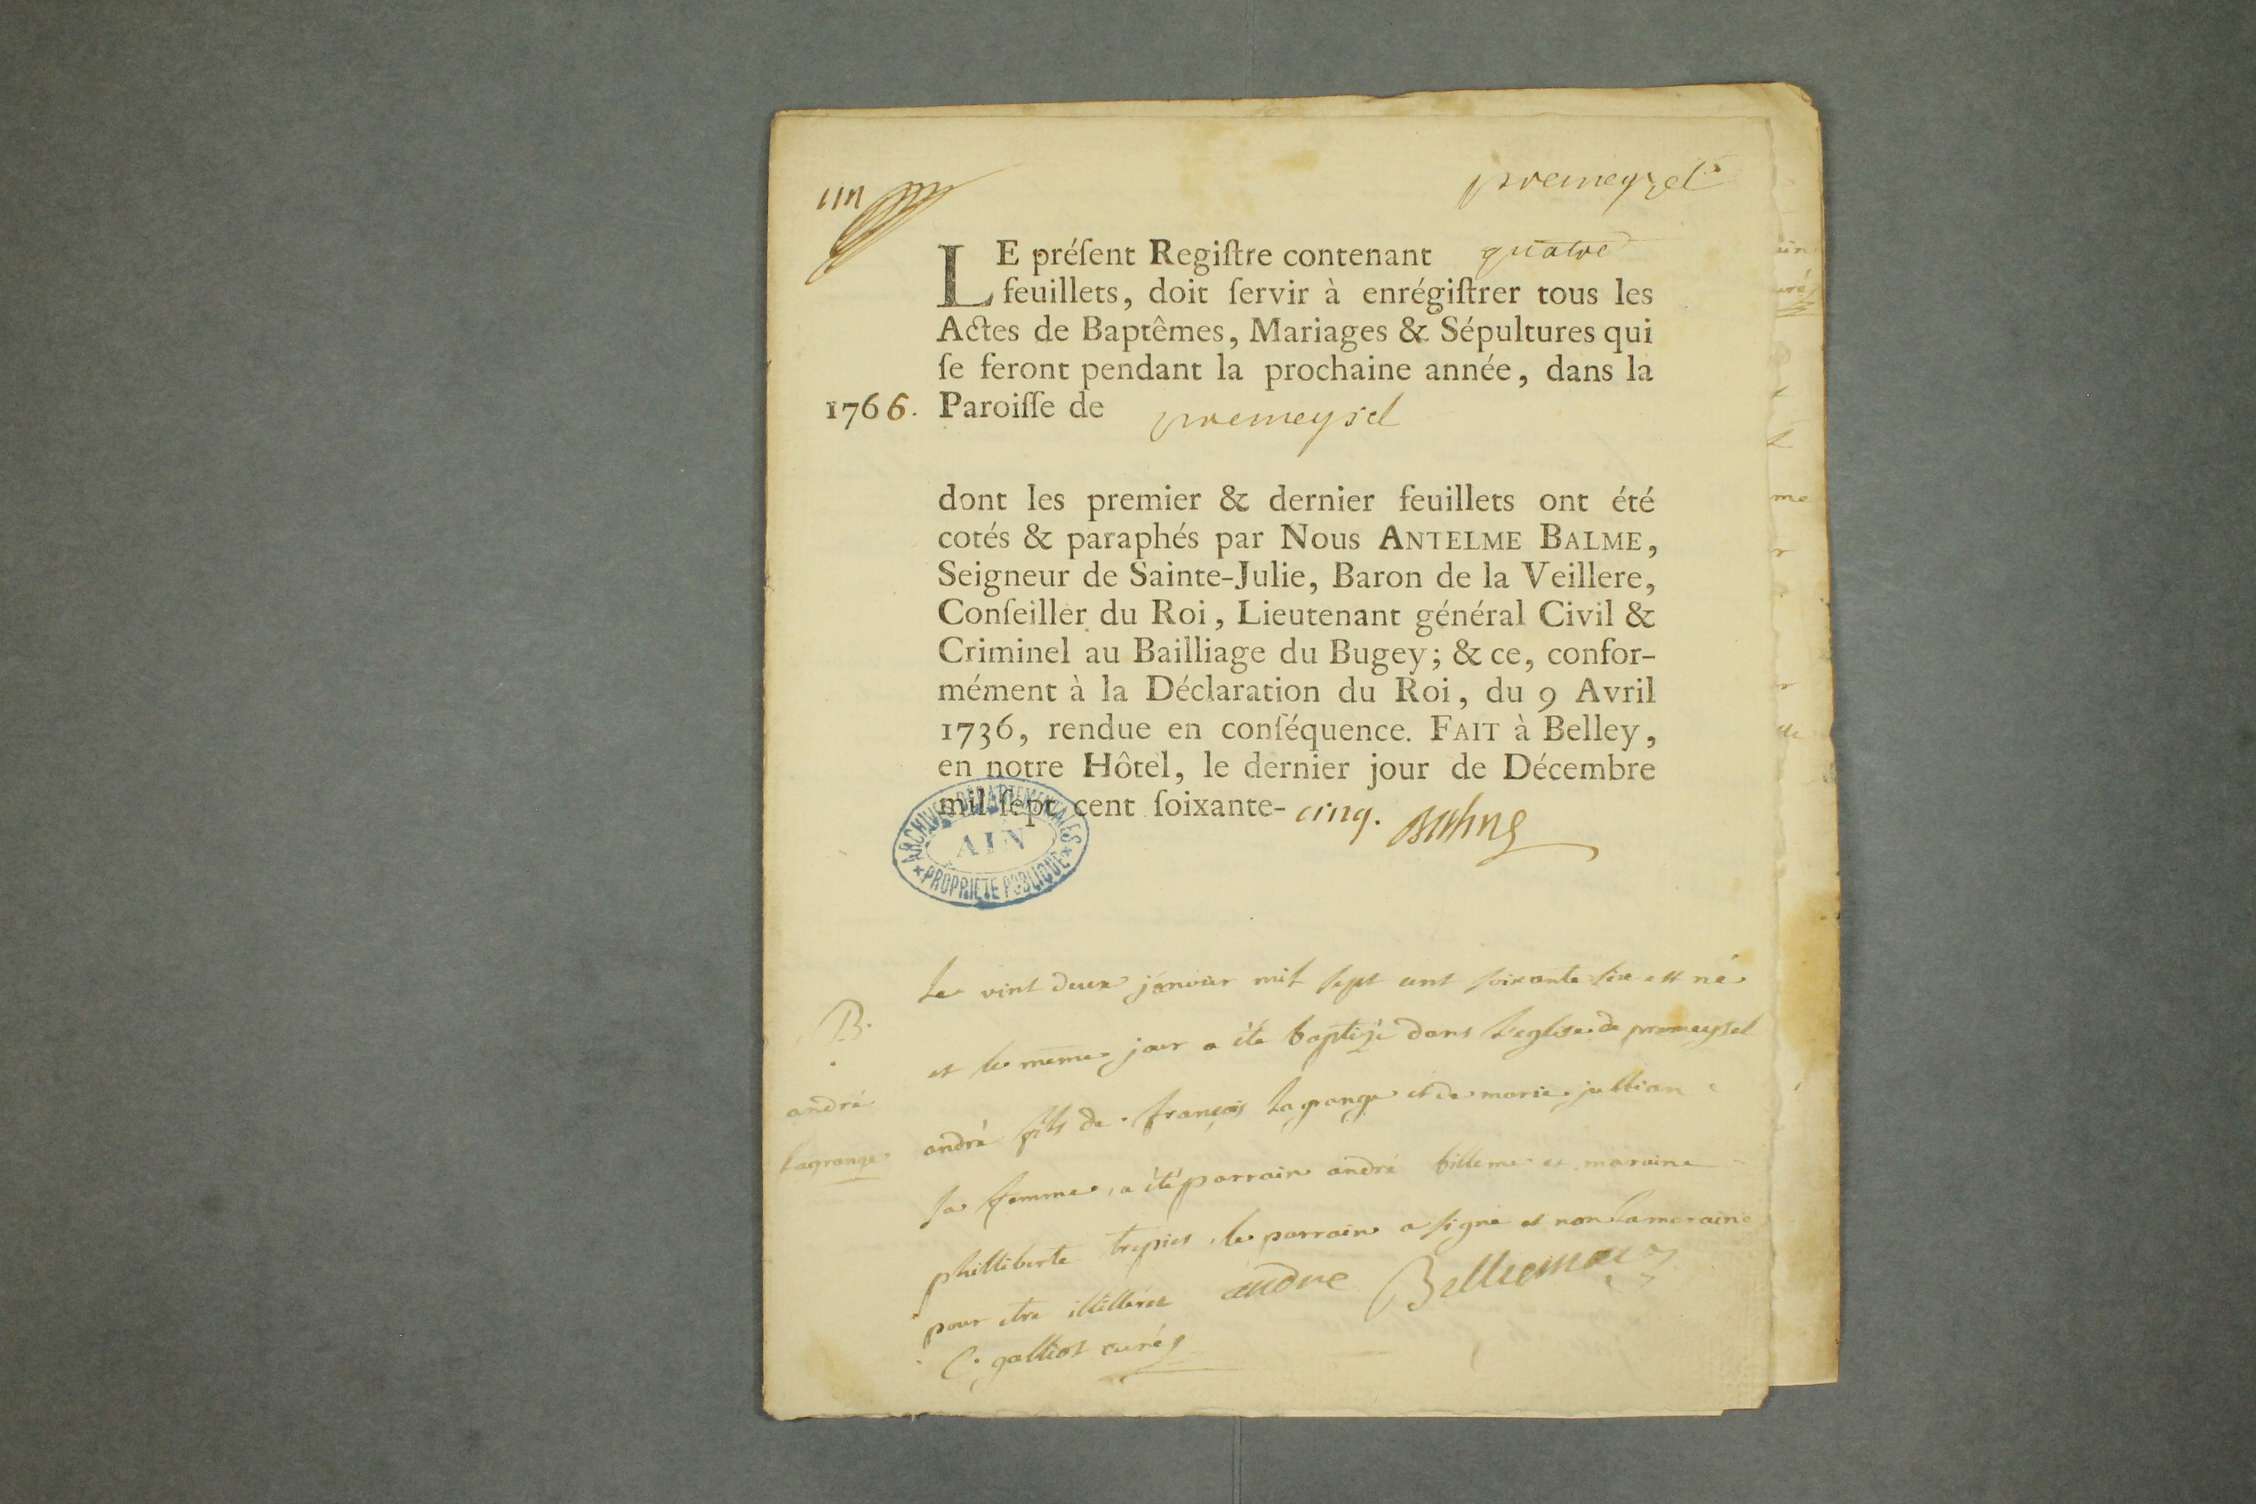 un
premeyzel
LE préſent Regiſtre contenant quatre
feuillets, doit ſervir à enrégiſtrer tous les
Actes de Baptêmes, Mariages & Sépultures qui
ſe feront pendant la prochaine année, dans la
1766. Paroiſſe de premeysel
dont les premier & dernier feuillets ont été
cotés & paraphés par Nous ANTELME BALME,
Seigneur de Sainte-Julie, Baron de la Veillere,
Conſeiller du Roi, Lieutenant général Civil &
Criminel au Bailliage du Bugey; & ce, confor-
mément à la Déclaration du Roi, du 9 Avril
1736, rendue en conſéquence. FAIT à Belley,
en notre Hôtel, le dernier jour de Décembre
mil ſept cent ſoixante-cinq. Balme
ARCHIVES DEPARTEMENTALES
AIN
* PROPRIETE PUBLIQUE *
B.
andré
lagrange
Le vint deux janvier mil sept cent soixante six est né
et le meme jour a été baptizé dans l'eglise de premeysel
andré fils de françois lagrange et de marie jullian
sa femme, a été parrain andré billeme et maraine
philliberte trepier, le parrain a signé et non la maraine
pour etre illitteree andre Billiemaz
C. galliot curé